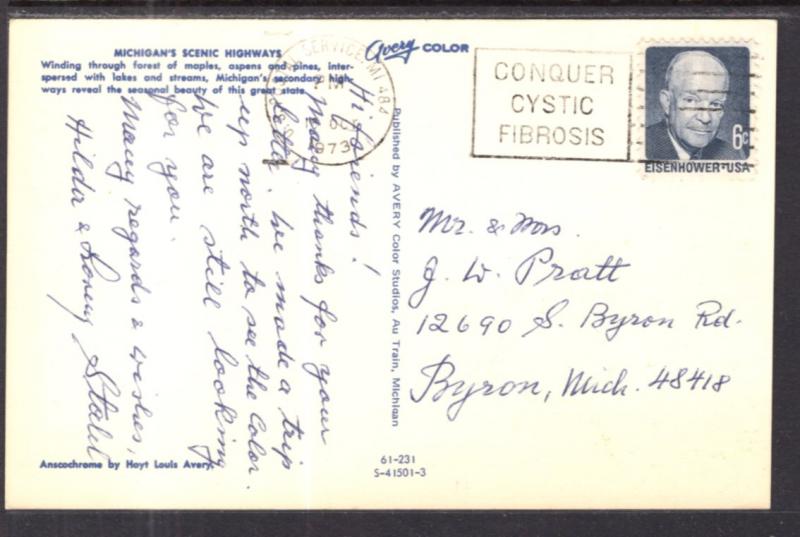 MICHIGAN'S SCENIC HIGHWAYS
Winding through forest of maples, aspens and pines, inter-
spersed with lakes and streams, Michigan's secondary high-
ways reveal the seasonal beauty of this great state.
Avery COLOR
SERVICE, MI 484
PM
1973
CONQUER
CYSTIC
FIBROSIS
6c
EISENHOWER·USA
Hi friends!
Many thanks for your
letter. We made a trip
up north to see the color.
We are still looking
for you.
Many regards & wishes,
Hilda & Loring Stahl
Published by AVERY Color Studios, Au Train, Michigan
Mr. & Mrs.
J. W. Pratt
12690 S. Byron Rd.
Byron, Mich. 48418
Anscochrome by Hoyt Louis Avery.
61-231
S-41501-3